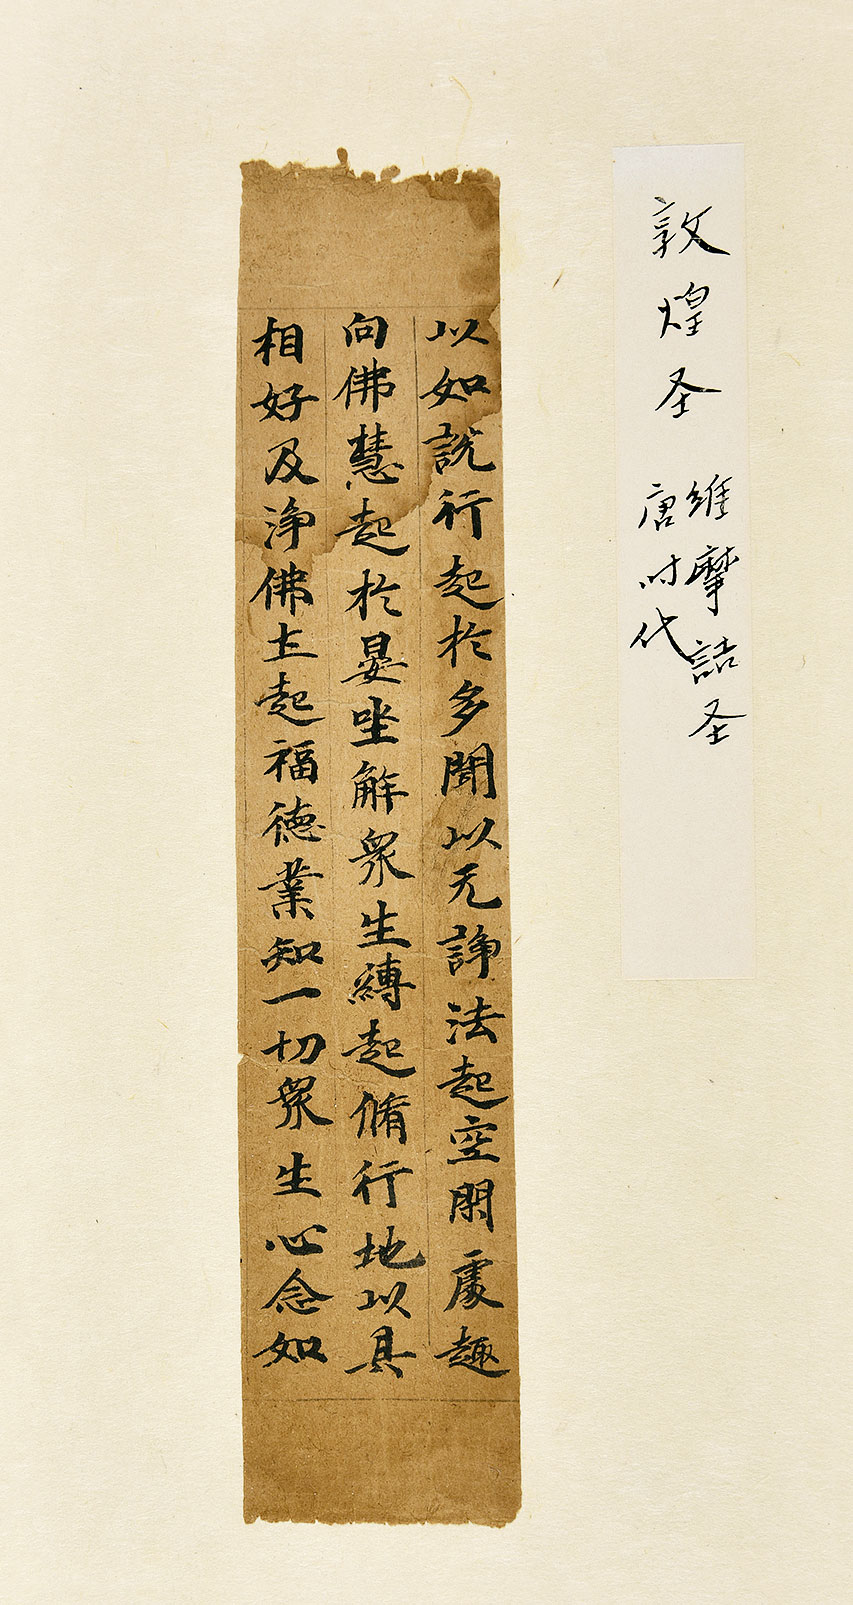 敦煌圣
維摩詰圣
唐时代
以如說行起於多聞以无諍法起空閑處趣
向佛慧起於晏坐解衆生縛起脩行地以具
相好及淨佛土起福德業知一切衆生心念如